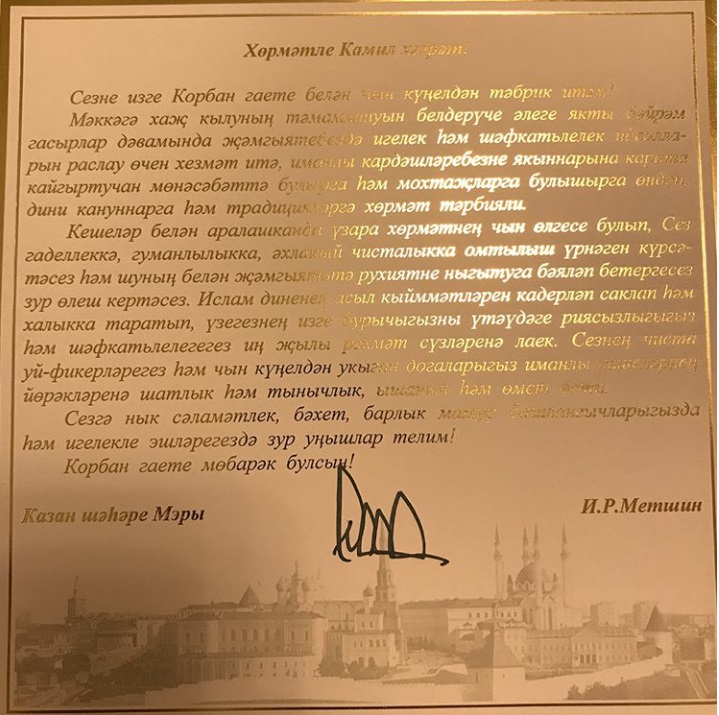 Хөрмәтле Камил хәзрәт!
Сезне изге Корбан гаете белән чын күңелдән тәбрик итәм!
Мәккәгә хаҗ кылуның тәмамлануын белдерүче әлеге якты бәйрәм
гасырлар дәвамында җәмгыятебездә игелек һәм шәфкатьлелек
рын раслау өчен хезмәт итә, иманлы кардәшләребезне якыннарына карата
кайгыртучан мөнәсәбәттә булырга һәм мохтаҗларга булышырга өндәп,
дини кануннарга һәм традицияләргә хөрмәт тәрбияли.
Кешеләр белән аралашканда үзара хөрмәтнең чын өлгесе булып, Сез
гаделлеккә, гуманлылыкка, әхлакый чисталыкка омтылыш үрнәген күрсә-
тәсез һәм шуның белән җәмгыятьтә рухиятне ныгытуга бәяләп бетергесез
зур өлеш кертәсез. Ислам диненең асыл кыйммәтләрен кадерләп саклап һәм
халыкка таратып, үзегезнең изге бурычыгызны үтәүдәге риясызлыгыгыз
һәм шәфкатьлелегегез иң җылы рәхмәт сүзләренә лаек. Сезнең чиста
уй-фикерләрегез һәм чын күңелдән укыган догаларыгыз иманлы кешеләрнең
йөрәкләренә шатлык һәм тынычлык, ышаныч һәм өмет
Сезгә нык сәламәтлек, бәхет, барлык матур башлангычларыгызда
һәм игелекле эшләрегездә зур уңышлар телим!
Корбан гаете мөбарәк булсын!
Казан шәһәре Мэры И.Р.Метшин